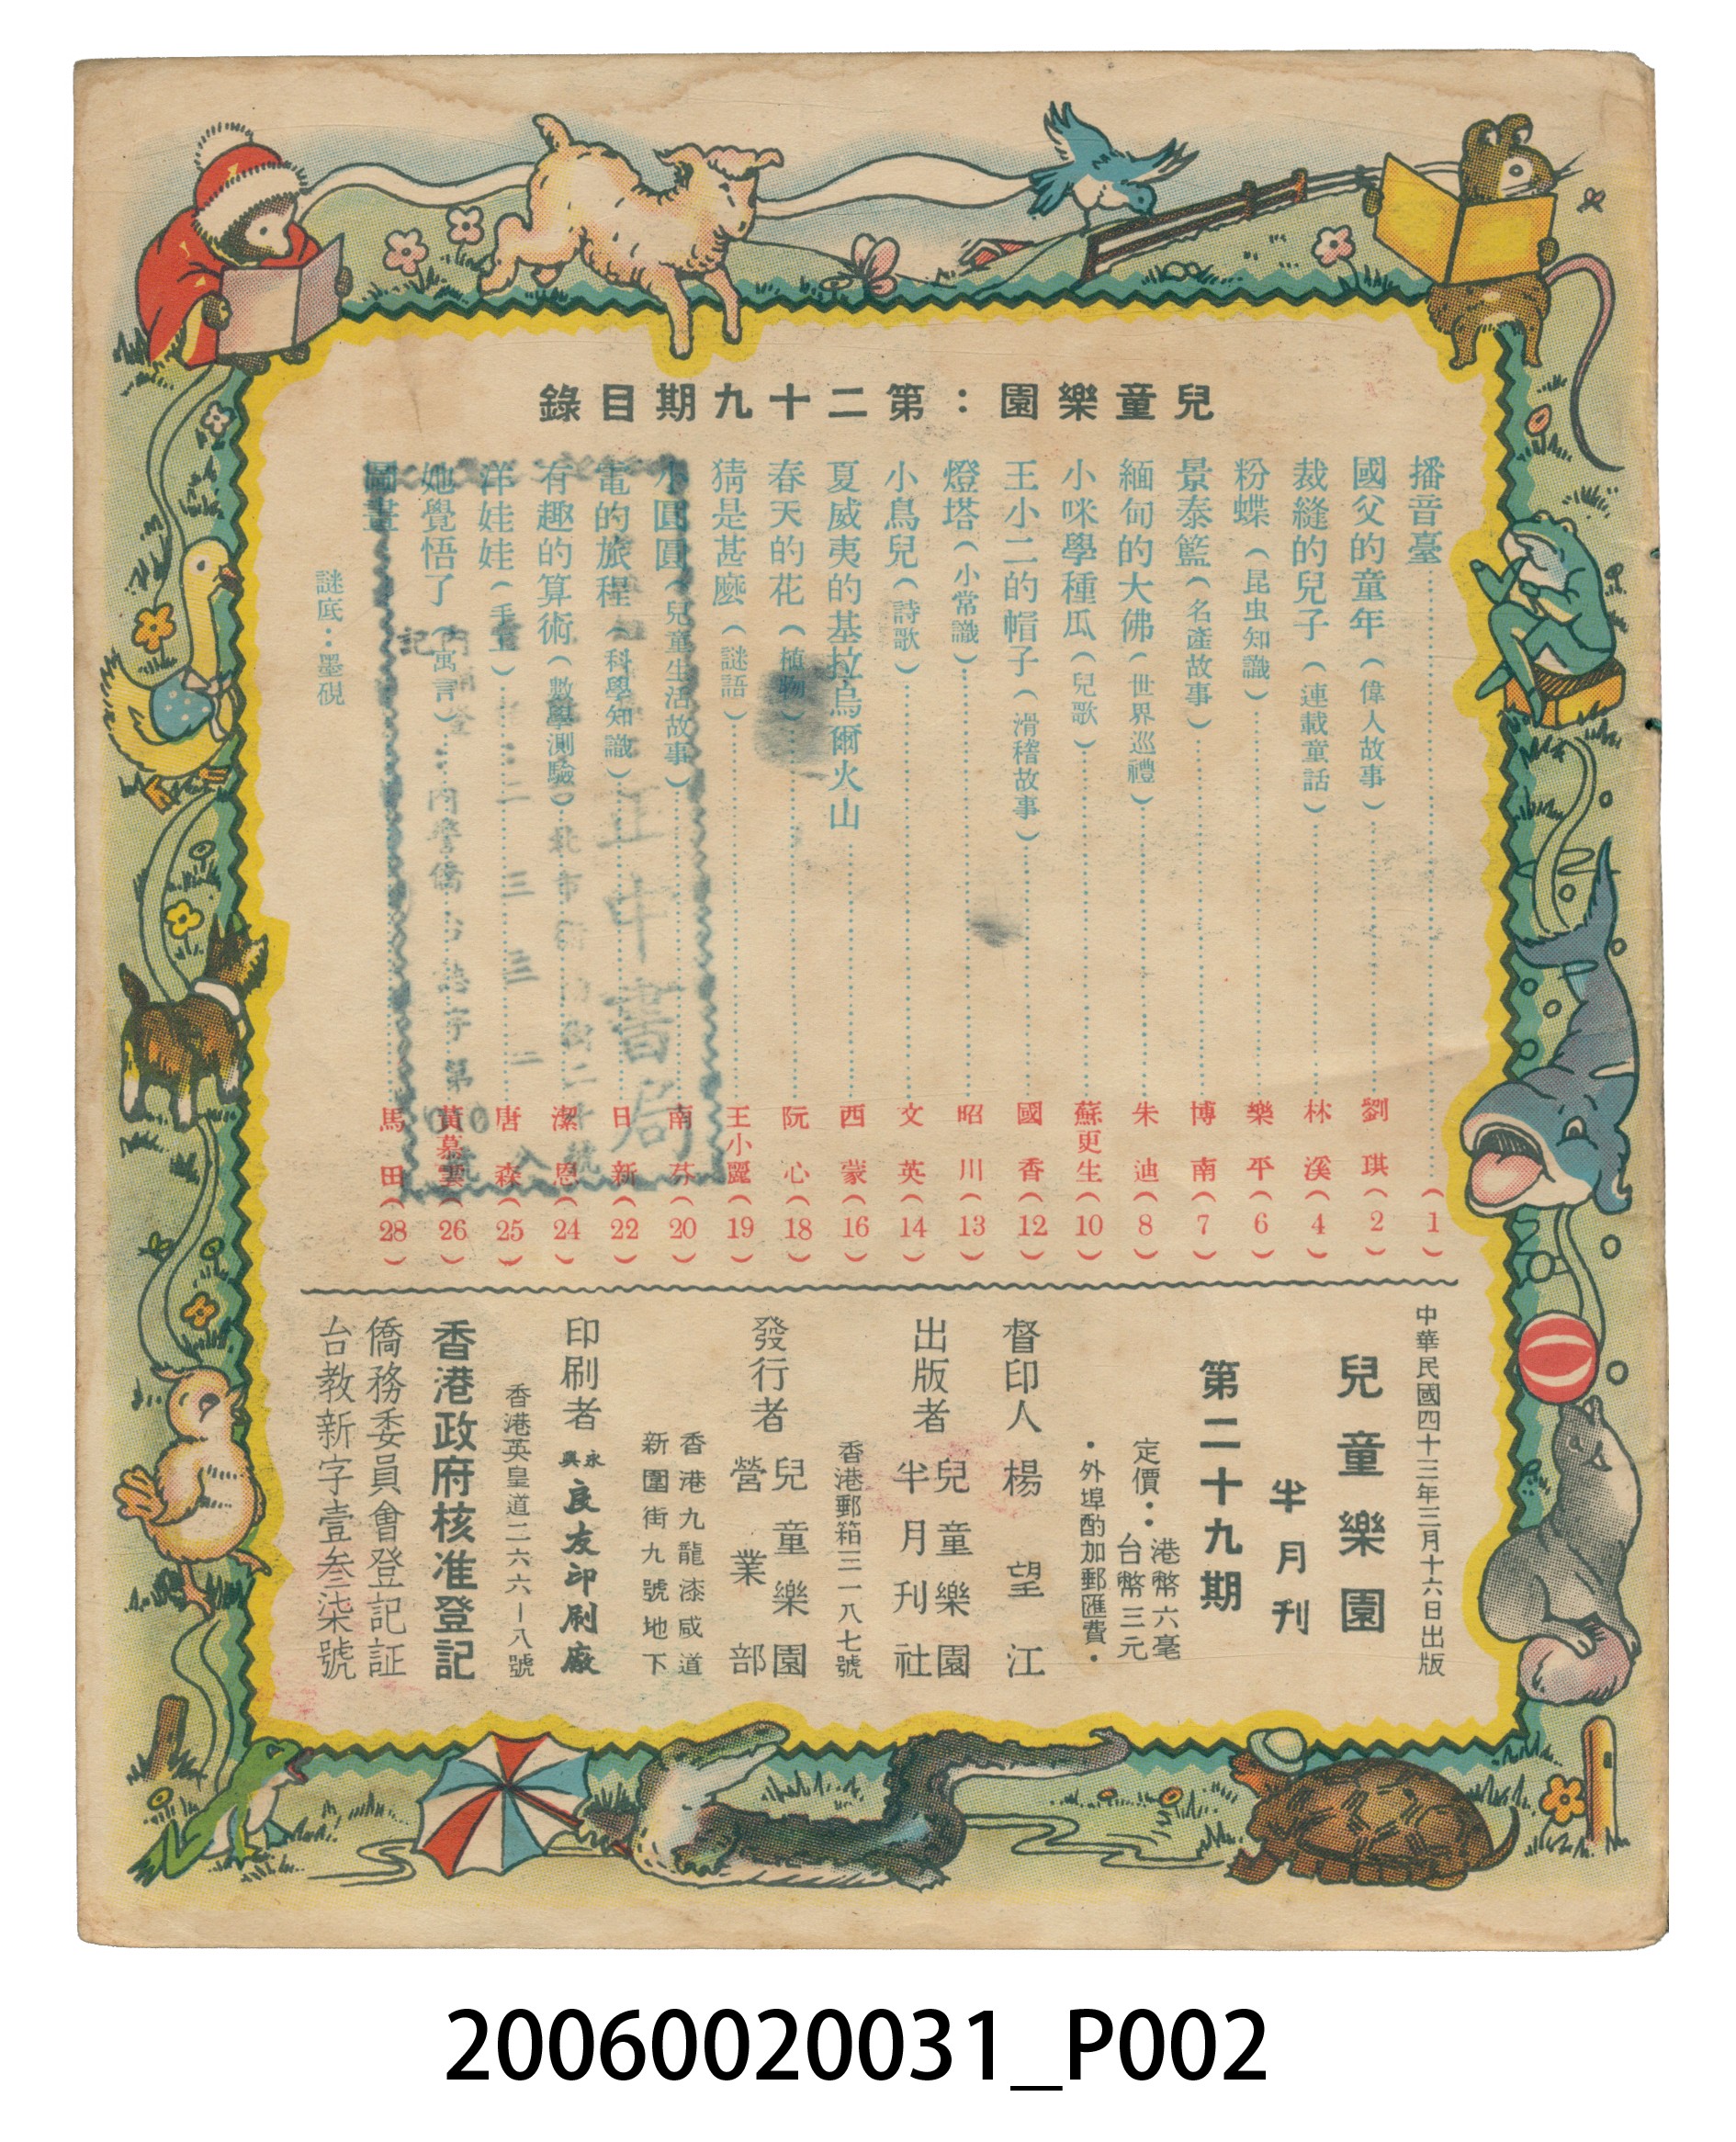 兒童樂園:第二十九期目錄
播音臺(1)
國父的童年(偉人故事)劉琪(2)
裁縫的兒子(連載童話)林溪(4)
粉蝶(昆虫知識)樂平(6)
景泰籃(名產故事)博南(7)
緬甸的大佛(世界巡禮)朱迪(8)
小咪學種瓜(兒歌)蘇更生(10)
王小二的帽子(滑稽故事)國香(12)
燈塔(小常識)昭川(13)
小鳥兒(詩歌)文英(14)
夏威夷的基拉烏爾火山 西蒙(16)
春天的花(植物)阮心(18)
猜是甚麼(謎語)王小麗(19)
小圓圓(兒童生活故事)南芬(20)
電的旅程(科學知識)日新(22)
有趣的算術(數學測驗)潔恩(24)
洋娃娃(手工)唐森(25)
她覺悟了(寓言)黃慕雲(26)
圖畫 馬田(28)
謎底:墨硯
正中書局
中華民國四十三年三月十六日出版
兒童樂園
半月刊
第二十九期
定價:港幣六毫
台幣三元
·外埠酌加郵匯費·
督印人 楊望江
出版者 兒童樂園
半月刊社
香港郵箱三一八七號
發行者 兒童樂園
營業部
香港九龍漆咸道
新圍街九號地下
印刷者 永興良友印刷廠
香港英皇道二六六—八號
香港政府核准登記
僑務委員會登記証
台教新字壹叁柒號
20060020031_P002